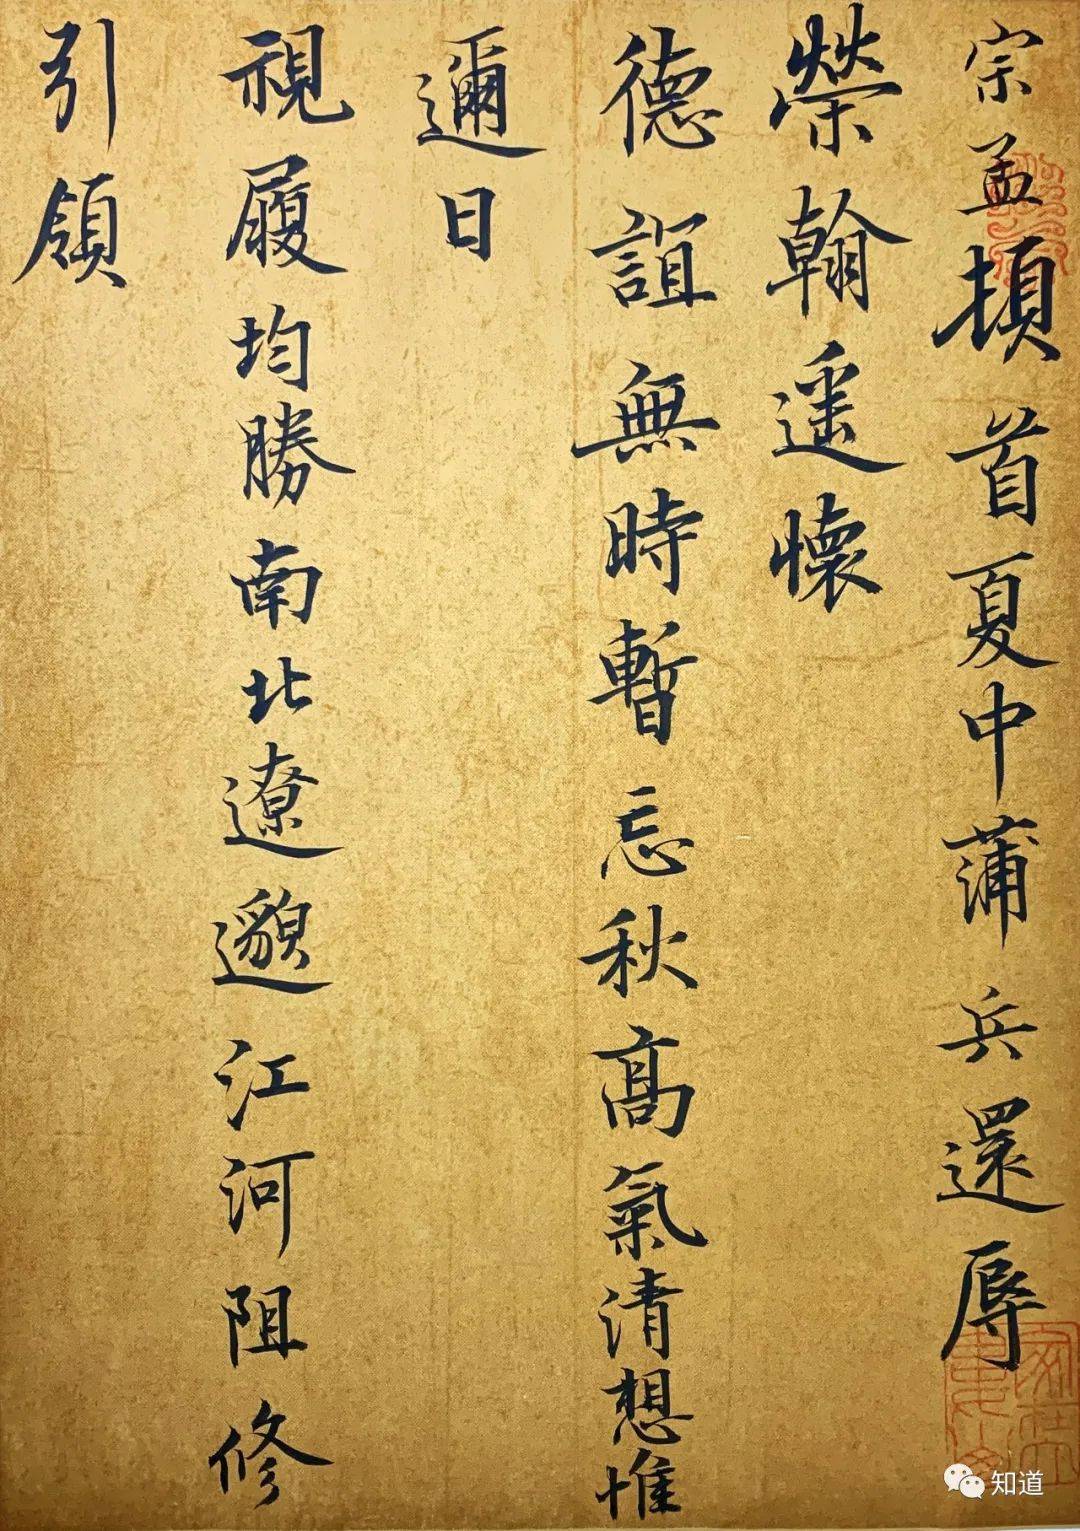 宗孟頓首夏中蒲兵還辱
榮翰遥懷
德誼無時暫忘秋髙氣清想惟
邇日
視履均勝南北遼邈江河阻修
引領
知道